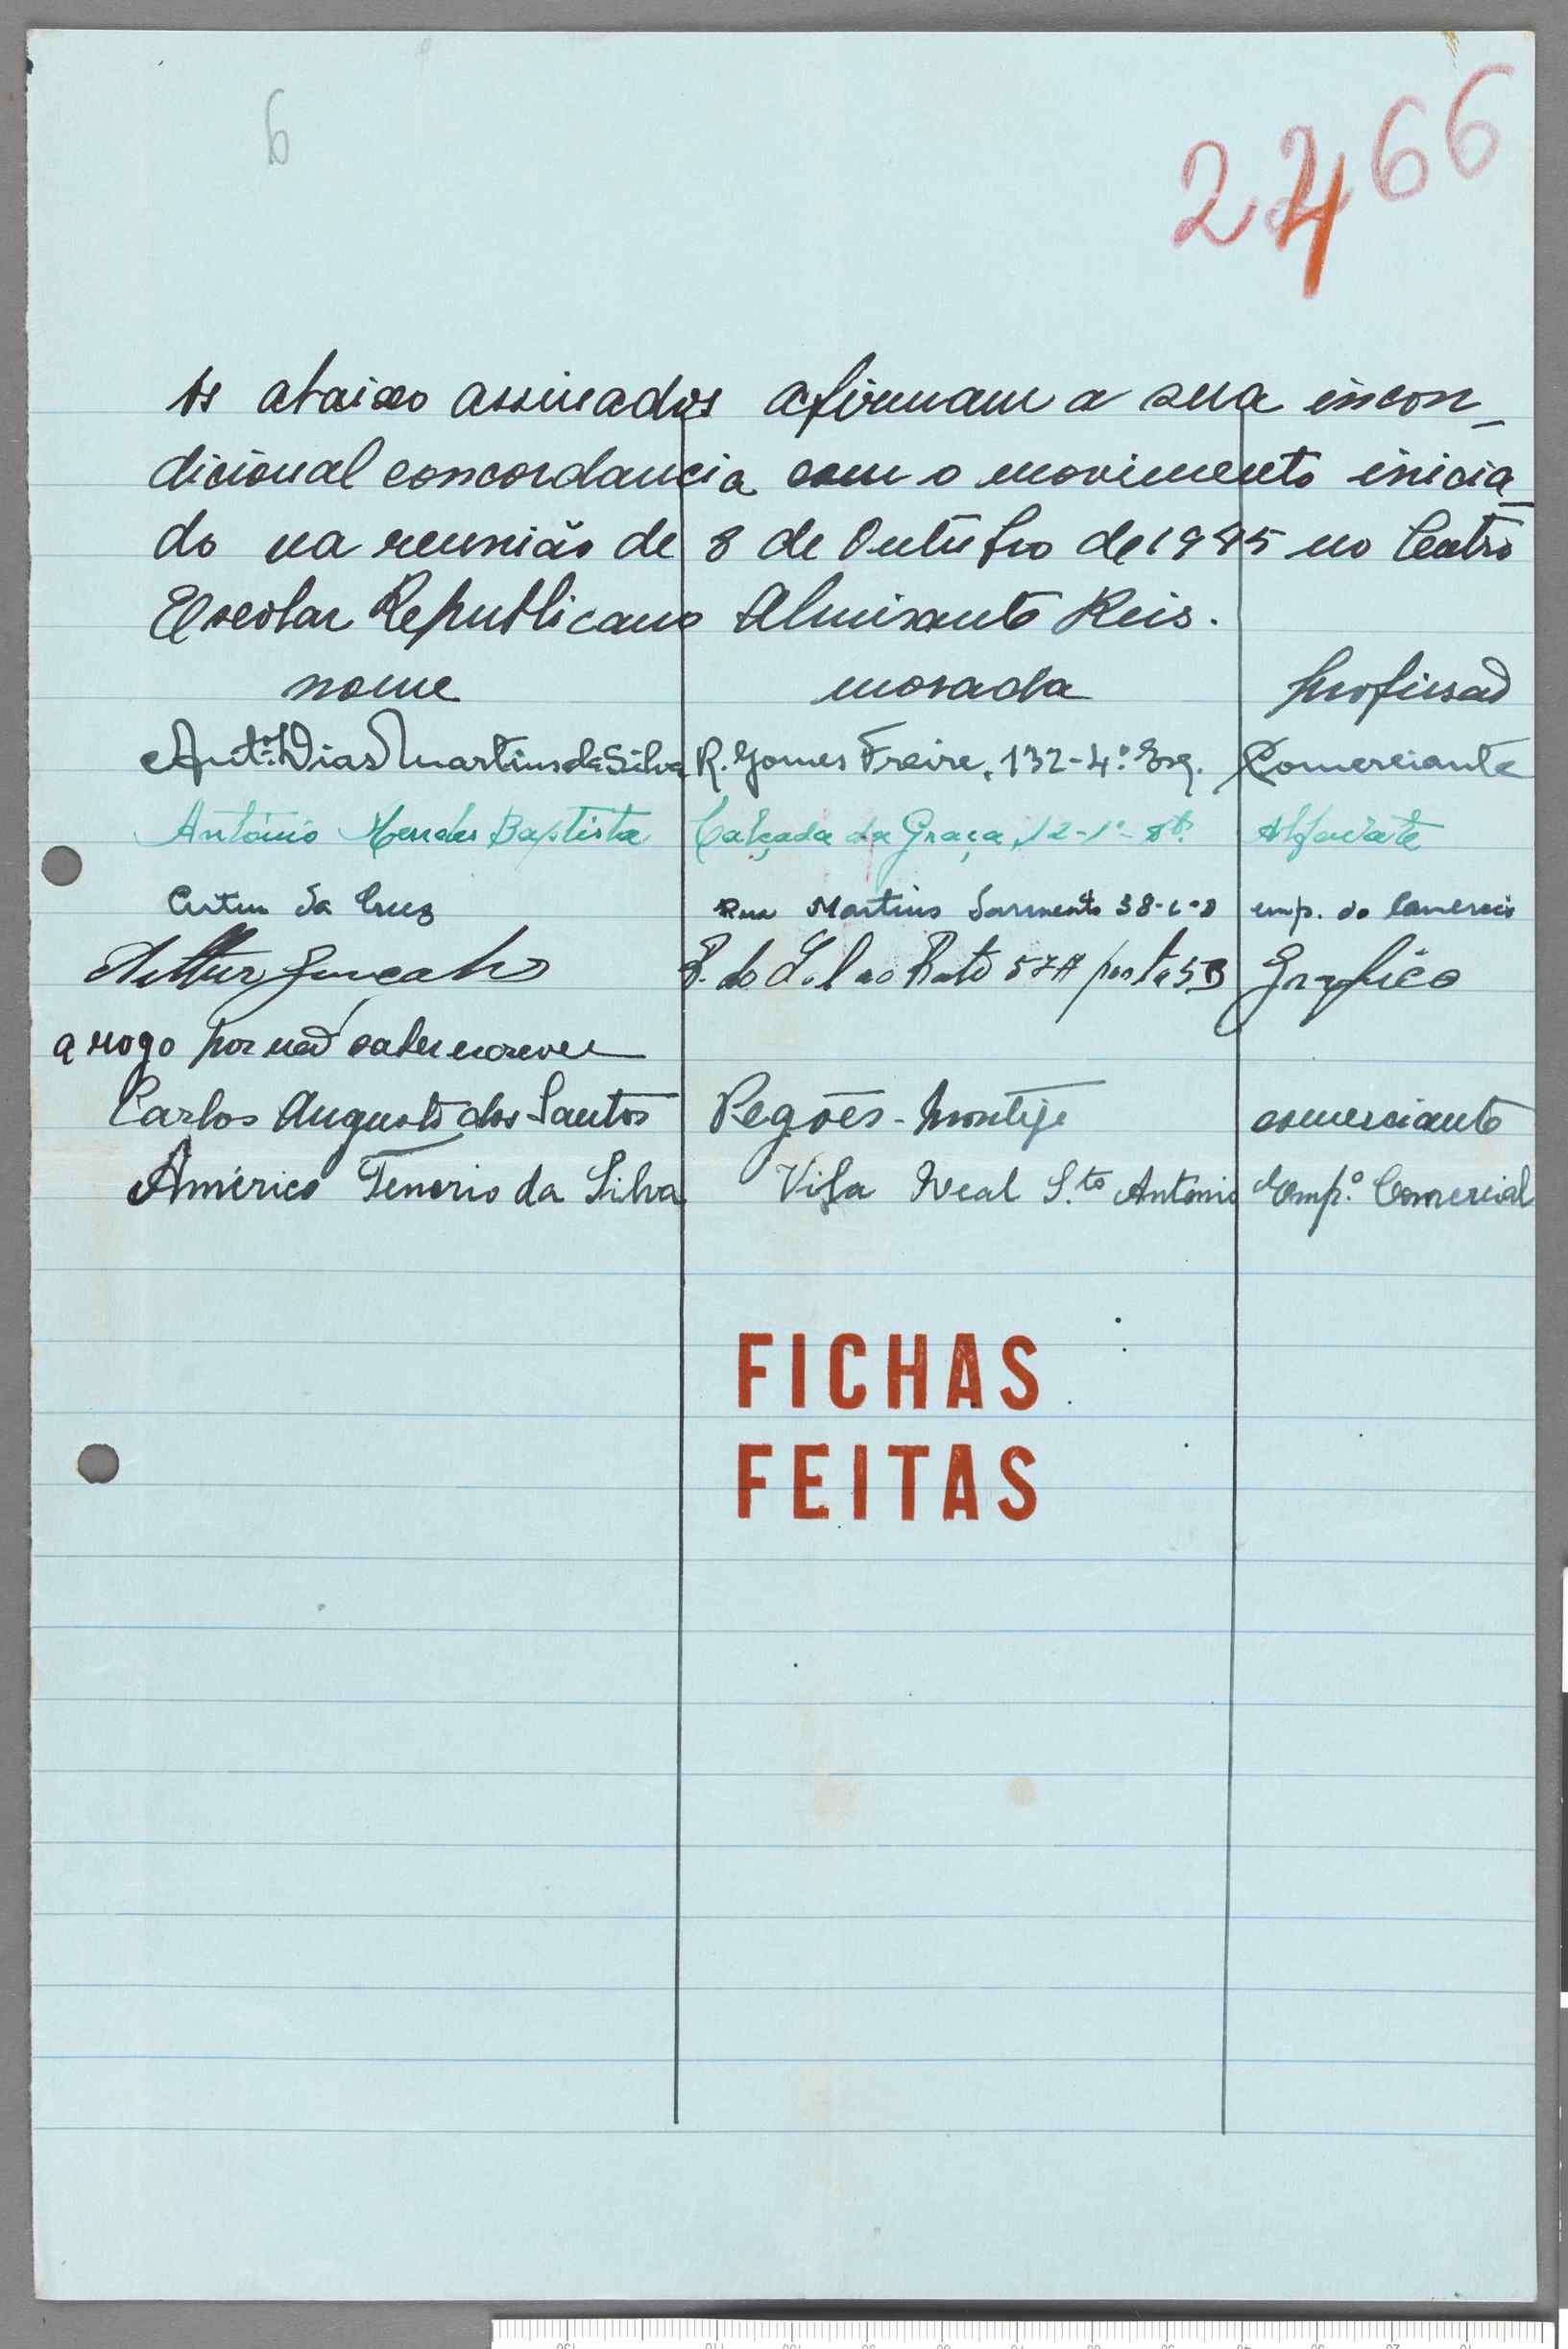 6
2466
Os abaixo assinados afirmam a sua incon-
dicional concordancia com o movimento inicia-
do na reunião de 8 de Outubro de 1945 no Centro
Escolar Republicano Almirante Reis.
nome morada profissão
Antº. Dias Martins da Silva R. Gomes Freire, 132-4º. Esq. Comerciante
António Mendes Baptista Calçada da Graça, 12-1º- Alfaiate
Artur da Cruz Rua Martins Sarmento 38- emp. do Comercio
Arthur Gonçalves R. do Sol ao Rato 57A porta 5 Grafico
a rogo por não saber escrever
Carlos Augusto dos Santos Pegões - Montijo comerciante
Américo Tenorio da Silva Vila Real S.to Antonio Emp.º Comercial
FICHAS
FEITAS